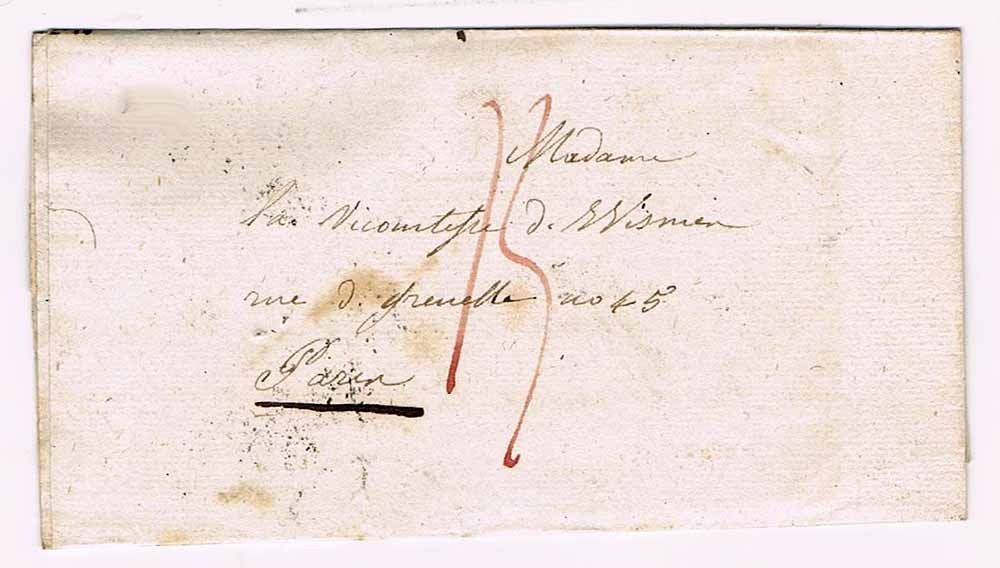 Madame
la Vicomtesse de Wismes
rue de grenelle no 45
Paris
15